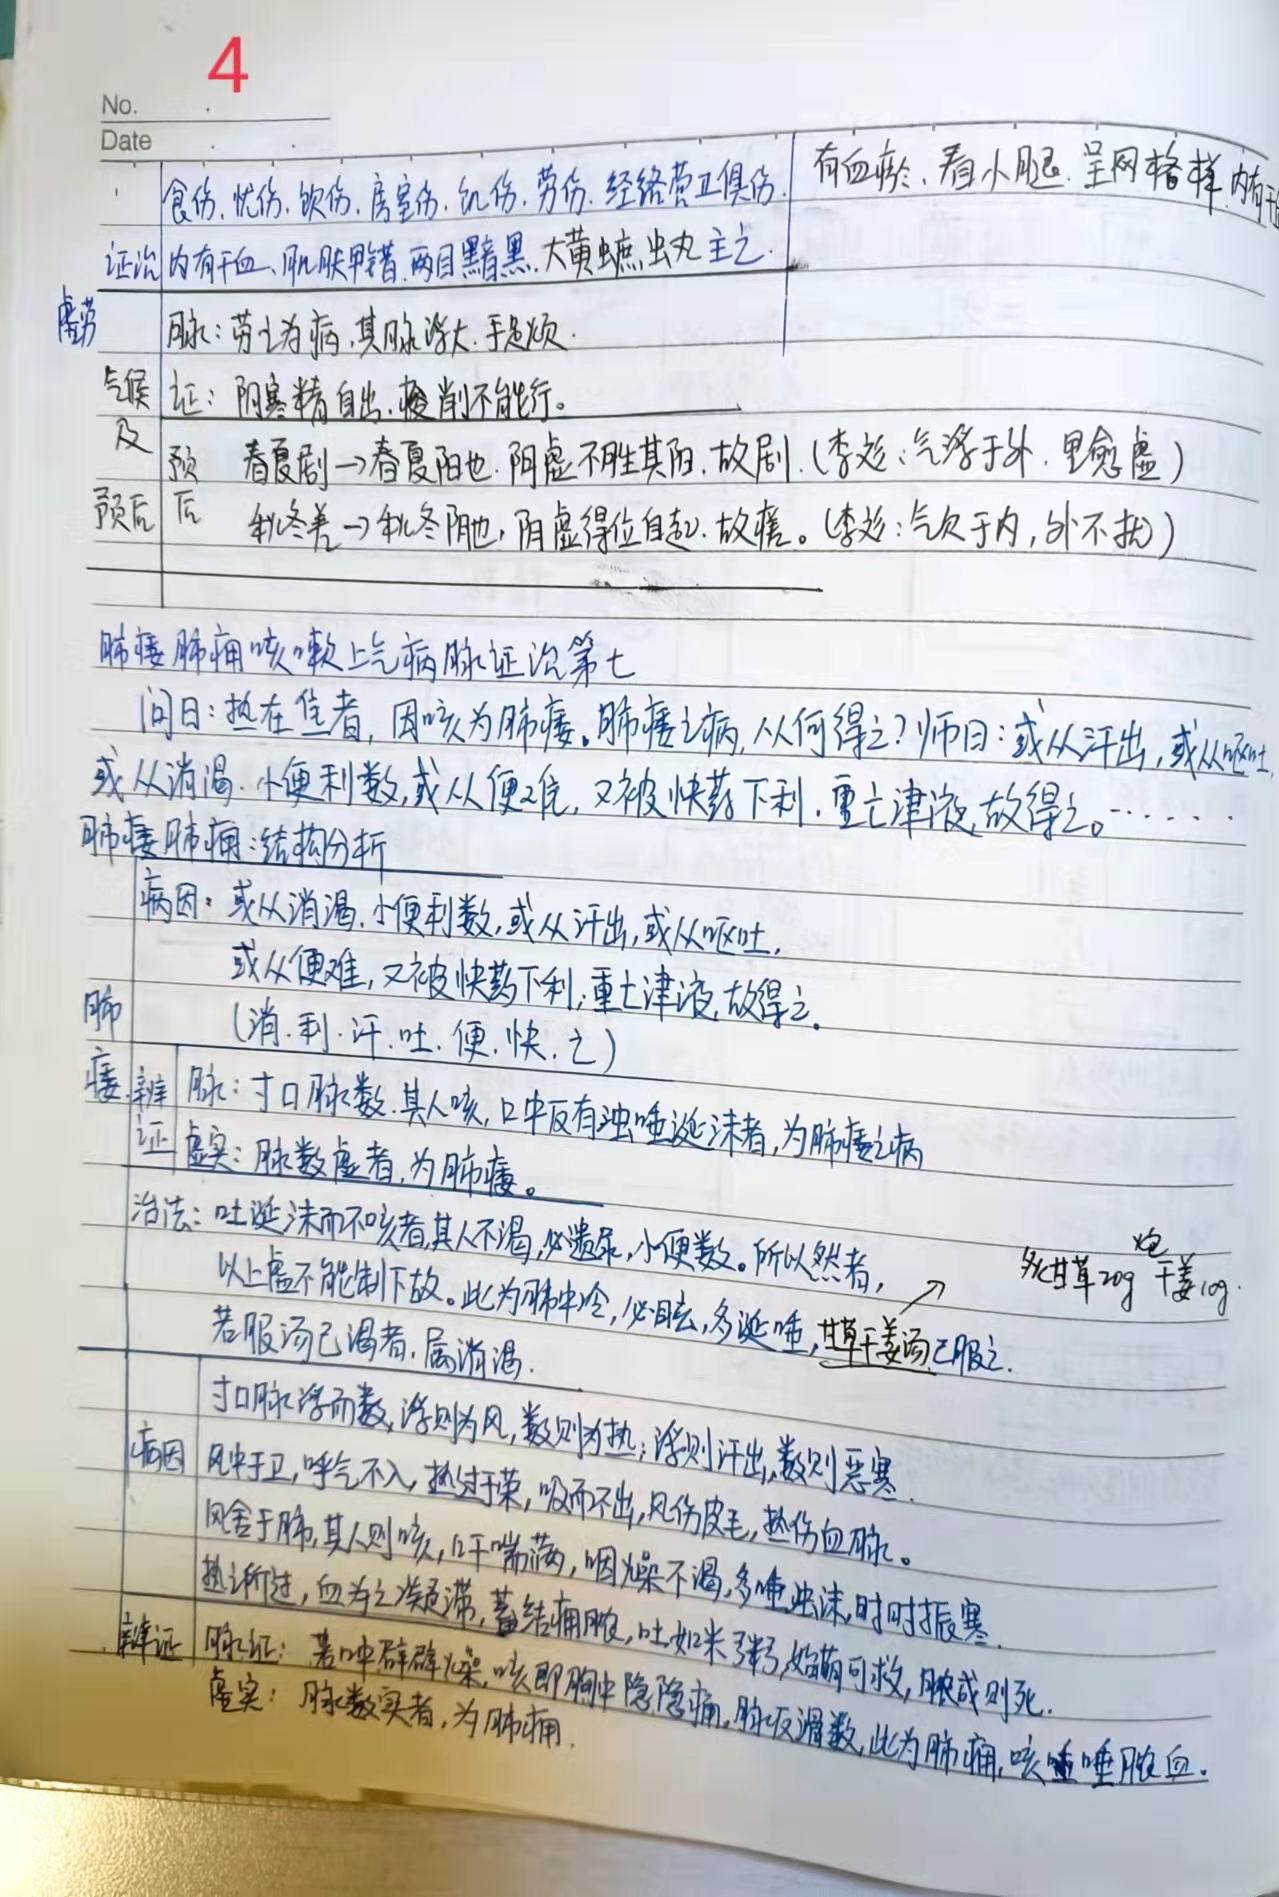 4
No.
Date
食伤、忧伤、饮伤、房室伤、饥伤、劳伤、经络营卫俱伤.
有血瘀、看小腿、呈网格样,内有干
证治
内有干血、肌肤甲错、两目黯黑.大黄䗪虫丸主之.
虚劳
脉:劳之为病,其脉浮大.手足烦.
气候
及
预后
证:阴寒精自出.痠削不能行。
预后
春夏剧→春夏阳也.阴虚不胜其阳.故剧.(李彣:气浮于外.里愈虚)
秋冬差→秋冬阴也,阴虚得位自起.故瘥。(李彣:气欠于内,外不扰)
肺痿肺痈咳嗽上气病脉证治第七
问曰:热在焦者,因咳为肺痿。肺痿之病,从何得之?师曰:或从汗出,或从呕吐,
或从消渴.小便利数,或从便难,又被快药下利.重亡津液,故得之。……
肺痿肺痈:结构分析
肺痿
病因:或从消渴.小便利数,或从汗出,或从呕吐,
或从便难,又被快药下利;重亡津液,故得之。
(消.利.汗.吐.便.快.之)
辨证
脉:寸口脉数.其人咳,口中反有浊唾涎沫者,为肺痿之病
虚实:脉数虚者,为肺痿。
治法:吐涎沫而不咳者,其人不渴,必遗尿,小便数。所以然者,
以上虚不能制下故。此为肺中冷,必眩,多涎唾,甘草干姜汤已服之.
炙甘草20g 炮干姜10g.
若服汤已渴者,属消渴.
病因
寸口脉浮而数,浮则为风,数则为热;浮则汗出,数则恶寒.
风中于卫,呼气不入,热过于荣,吸而不出,风伤皮毛,热伤血脉。
风舍于肺,其人则咳,口干喘满,咽燥不渴,多唾浊沫,时时振寒.
热之所过,血为之凝滞,蓄结痈脓,吐如米粥,始萌可救,脓成则死.
辨证
脉证:若口中辟辟燥,咳即胸中隐隐痛,脉反滑数,此为肺痈,咳唾脓血.
虚实:脉数实者,为肺痈.